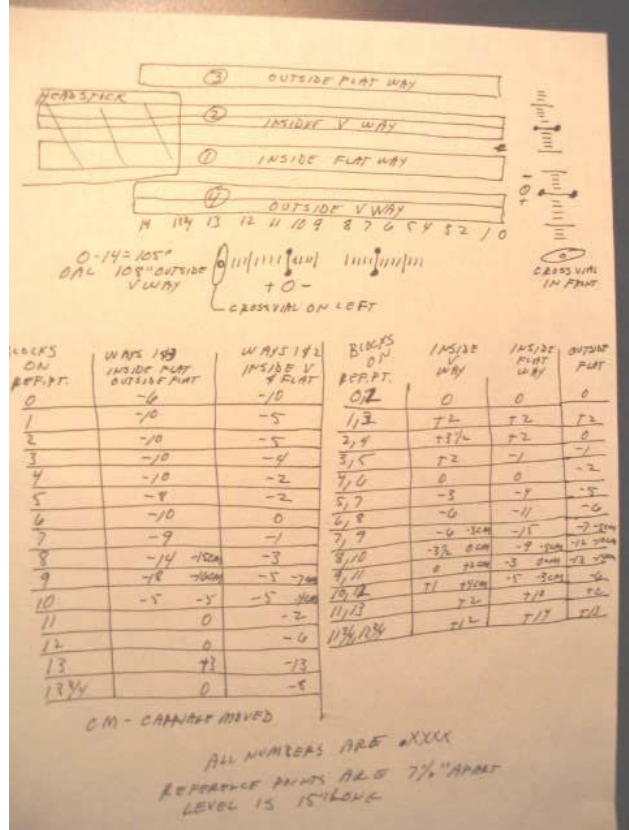 ③ OUTSIDE FLAT WAY
HEADSTOCK
② INSIDE V WAY
① INSIDE FLAT WAY
④ OUTSIDE V WAY
14 13 12 11 10 9 8 7 6 5 4 3 2 1 0
- 0 +
0-14=105"
OAL 108" OUTSIDE
V WAY
+ 0 -
CROSSVIAL ON LEFT
CROSSVIAL
IN FRONT
BLOCKS ON REF.PT. WAYS 1&3 INSIDE FLAT OUTSIDE FLAT WAYS 1&2 INSIDE V & FLAT
0 -6 -10
1 -10 -5
2 -10 -5
3 -10 -4
4 -10 -2
5 -8 -2
6 -10 0
7 -9 -1
8 -14 -15CM -3
9 -18 -16CM -5 -7CM
10 -5 -5 -5 -4CM
11 0 -2
12 0 -6
13 +3 -13
13 3/4 0 -8
BLOCKS ON REF.PT. INSIDE V WAY INSIDE FLAT WAY OUTSIDE FLAT
0,2 0 0 0
1,3 +2 +2 +2
2,4 +3 1/2 +2 0
3,5 +2 -1 -1
4,6 0 0 -2
5,7 -3 -4 -5
6,8 -6 -11 -6
7,9 -6 -3CM -15 -7
8,10 -3 1/2 0CM -9 -12
9,11 0 +2CM -3 0CM -13
10,12 +1 +4CM -5 -3CM
11,13 +2 +10
11 3/4, 13 3/4 +12 +17
CM - CARRIAGE MOVED
ALL NUMBERS ARE .XXXX
REFERENCE POINTS ARE 7 1/2" APART
LEVEL IS 15" LONG